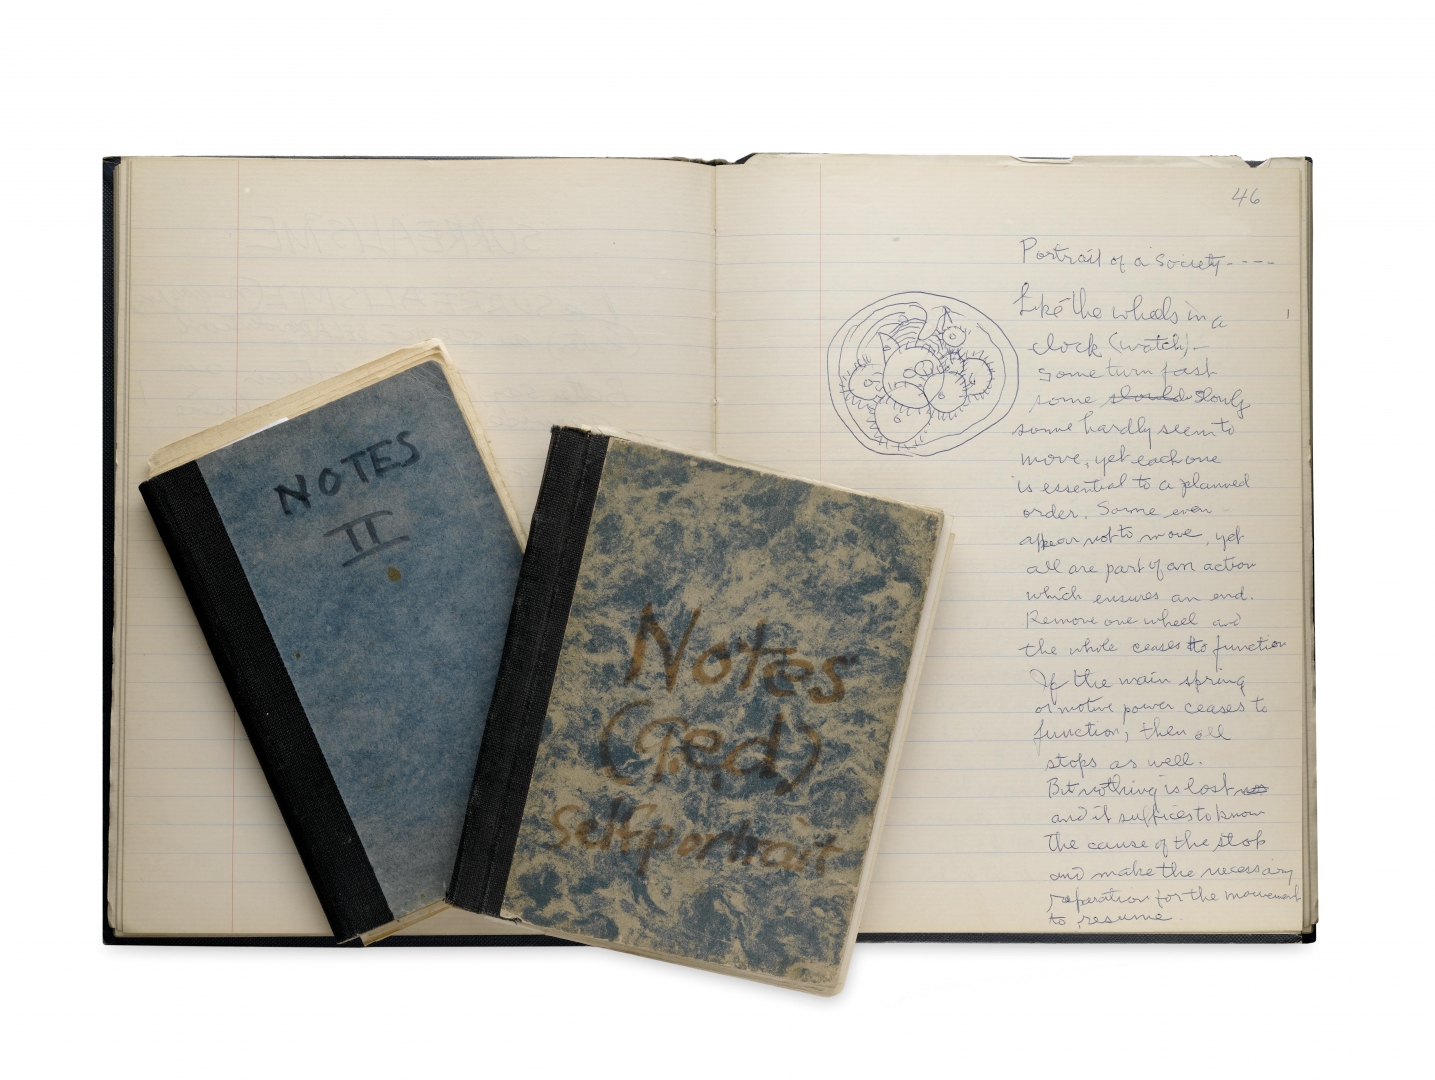 46
Portrait of a Society ----
Like the wheels in a
clock (watch) -
some turn fast
some should slowly
some hardly seem to
move, yet each one
is essential to a planned
order. Some even
appear not to move, yet
all are part of an action
which ensures an end.
Remove one wheel and
the whole ceases to function
If the main spring
or motive power ceases to
function, then all
stops as well.
But nothing is lost
and it suffices to know
the cause of the stop
and make the necessary
reparation for the movement
to resume.
NOTES
II
Notes
(q.e.d)
Selfportrait
SURREALISME